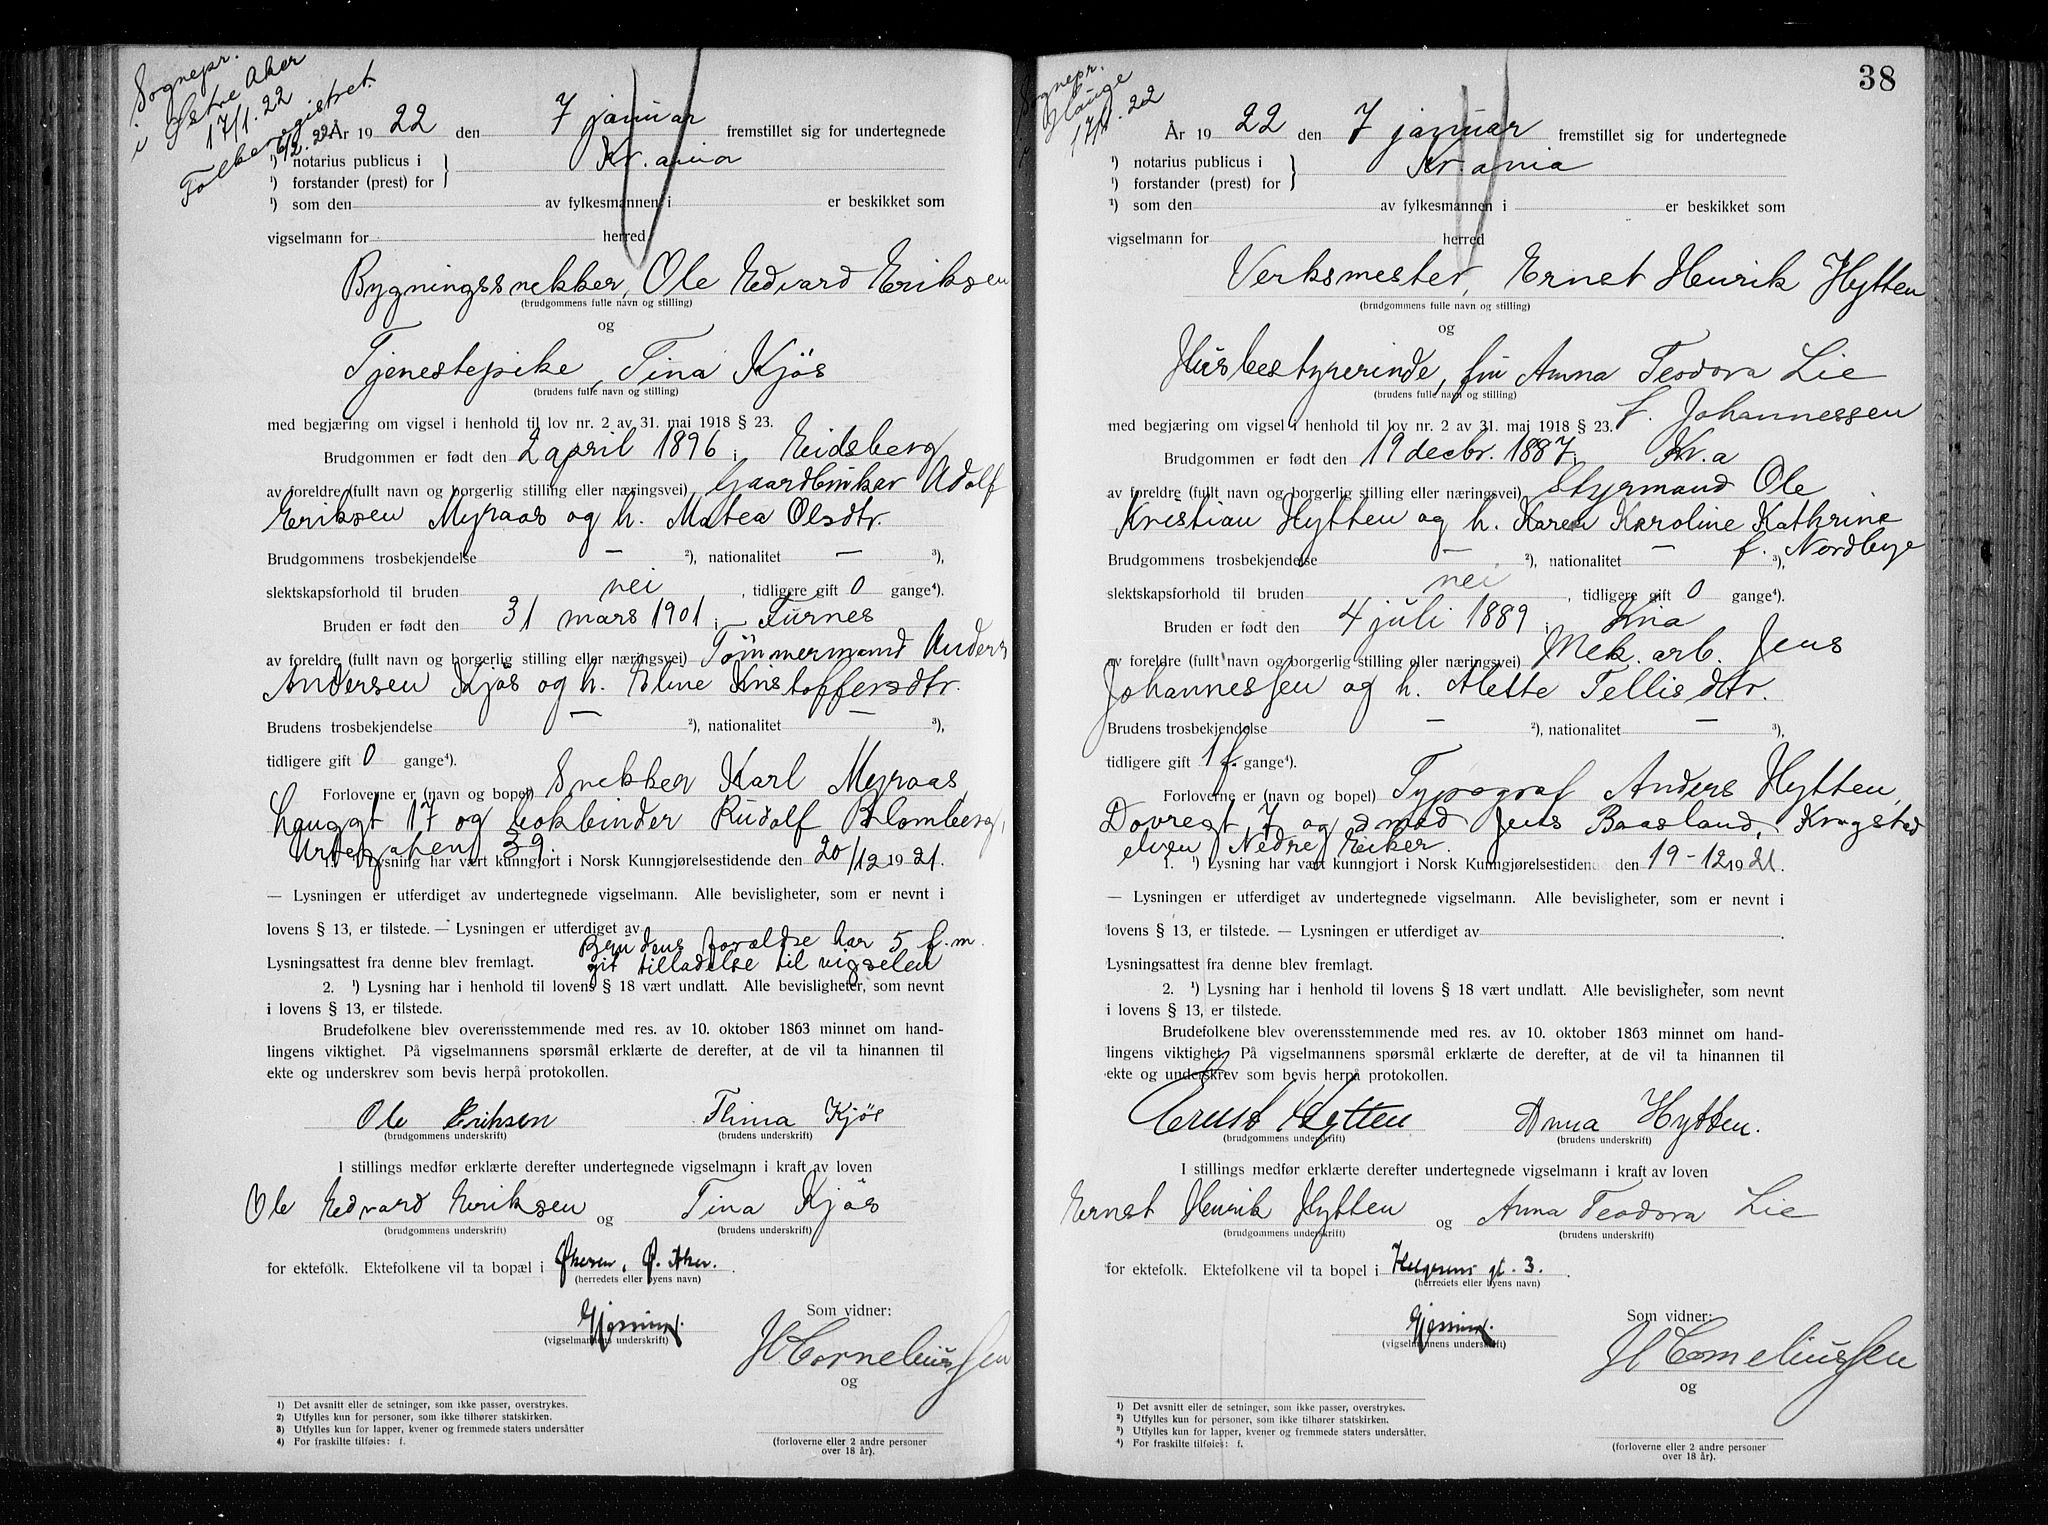 Sognepr.
i Østre Aker
17/1. 22
Folkeregistret.
6/2. 22
År 1922 den 7 januar fremstillet sig for undertegnede
¹) notarius publicus i } Kr.ania
¹) forstander (prest) for
¹) som den av fylkesmannen i er beskikket som
vigselmann for herred
Bygningssnekker, Ole Edvard Eriksen
(brudgommens fulle navn og stilling)
og
Tjenestepike, Tina Kjös
(brudens fulle navn og stilling)
med begjæring om vigsel i henhold til lov nr. 2 av 31. mai 1918 § 23.
Brudgommen er født den 2 april 1896 i Eidsberg
av foreldre (fullt navn og borgerlig stilling eller næringsvei) Gaardbruker Adolf
Eriksen Myraas og h. Matea Olsdtr.
Brudgommens trosbekjendelse — ²), nationalitet — ³),
slektskapsforhold til bruden nei, tidligere gift 0 gange⁴).
Bruden er født den 31 mars 1901 i Furnes
av foreldre (fullt navn og borgerlig stilling eller næringsvei) Tömmermand Anders
Andersen Kjös og h. Eline Kristoffersdtr.
Brudens trosbekjendelse — ²), nationalitet — ³),
tidligere gift 0 gange⁴).
Forloverne er (navn og bopel) Snekker Karl Myraas
Lauggt 17 og bokbinder Rudolf Blomberg,
Urtegaten 39.
1. ¹) Lysning har vært kunngjort i Norsk Kunngjørelsestidende den 20/12 1921.
— Lysningen er utferdiget av undertegnede vigselmann. Alle bevisligheter, som er nevnt i
lovens § 13, er tilstede. — Lysningen er utferdiget av
Brudens forældre har 5 f. m.
Lysningsattest fra denne blev fremlagt. git tilladelse til vigselen
2. ¹) Lysning har i henhold til lovens § 18 vært undlatt. Alle bevisligheter, som nevnt
i lovens § 13, er tilstede.
Brudefolkene blev overensstemmende med res. av 10. oktober 1863 minnet om hand-
lingens viktighet. På vigselmannens spørsmål erklærte de derefter, at de vil ta hinannen til
ekte og underskrev som bevis herpå protokollen.
Ole Eriksen Thina Kjös
(brudgommens underskrift) (brudens underskrift)
I stillings medfør erklærte derefter undertegnede vigselmann i kraft av loven
Ole Edvard Eriksen og Tina Kjös
(brudgommens underskrift) (brudens underskrift)
for ektefolk. Ektefolkene vil ta bopæl i Økern, Ø. Aker.
(herredets eller byens navn)
Som vidner:
(vigselmannens underskrift)
H Corneliussen
og
1) Det avsnitt eller de setninger, som ikke passer, overstrykes.
2) Utfylles kun for personer, som ikke tilhører statskirken.
3) Utfylles kun for lapper, kvener og fremmede staters undersåtter
4) For fraskilte tilføies: f.
(forloverne eller 2 andre personer
over 18 år).
38
Sognepr.
Hauge
17/1. 22
År 1922 den 7 januar fremstillet sig for undertegnede
¹) notarius publicus i } Kr.ania
¹) forstander (prest) for
¹) som den av fylkesmannen i er beskikket som
vigselmann for herred
Verksmester, Ernst Henrik Hytten
(brudgommens fulle navn og stilling)
og
Husbestyrerinde, fru Anna Teodora Lie
(brudens fulle navn og stilling)
f. Johannessen
med begjæring om vigsel i henhold til lov nr. 2 av 31. mai 1918 § 23.
Brudgommen er født den 19 decbr. 1887 i Kr.a
av foreldre (fullt navn og borgerlig stilling eller næringsvei) Styrmand Ole
Kristian Hytten og h. Karen Karoline Kathrine
f. Nordbye
Brudgommens trosbekjendelse — ²), nationalitet — ³),
slektskapsforhold til bruden nei, tidligere gift 0 gange⁴).
Bruden er født den 4 juli 1889 i Kria
av foreldre (fullt navn og borgerlig stilling eller næringsvei) Mek. arb. Jens
Johannessen og h. Alette Tellisdtr.
Brudens trosbekjendelse — ²), nationalitet — ³),
tidligere gift 1 f. gange⁴).
Forloverne er (navn og bopel) Typograf Anders Hytten,
Dovregt 7 og smed Jens Baasland, Krogstad
elven Nedre Eiker.
1. ¹) Lysning har vært kunngjort i Norsk Kunngjørelsestidende den 19-12 1921.
— Lysningen er utferdiget av undertegnede vigselmann. Alle bevisligheter, som er nevnt i
lovens § 13, er tilstede. — Lysningen er utferdiget av
Lysningsattest fra denne blev fremlagt.
2. ¹) Lysning har i henhold til lovens § 18 vært undlatt. Alle bevisligheter, som nevnt
i lovens § 13, er tilstede.
Brudefolkene blev overensstemmende med res. av 10. oktober 1863 minnet om hand-
lingens viktighet. På vigselmannens spørsmål erklærte de derefter, at de vil ta hinannen til
ekte og underskrev som bevis herpå protokollen.
Ernst Hytten Anna Hytten.
(brudgommens underskrift) (brudens underskrift)
I stillings medfør erklærte derefter undertegnede vigselmann i kraft av loven
Ernst Henrik Hytten og Anna Teodora Lie
(brudgommens underskrift) (brudens underskrift)
for ektefolk. Ektefolkene vil ta bopel i Helgesens gt. 3.
(herredets eller byens navn)
Som vidner:
(vigselmannens underskrift)
H Corneliussen
og
1) Det avsnitt eller de setninger, som ikke passer, overstrykes.
²) Utfylles kun for personer, som ikke tilhører statskirken.
³) Utfylles kun for lapper, kvener og fremmede staters undersåtter.
⁴) For fraskilte tilføies: f.
(forloverne eller 2 andre personer
over 18 år).